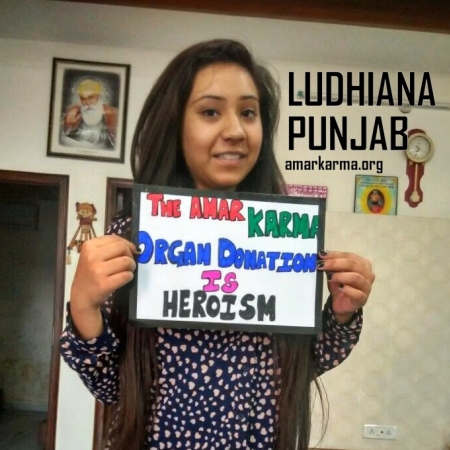 LUDHIANA
PUNJAB
amarkarma.org
THE AMAR KARMA
ORGAN DONATION
IS
HEROISM